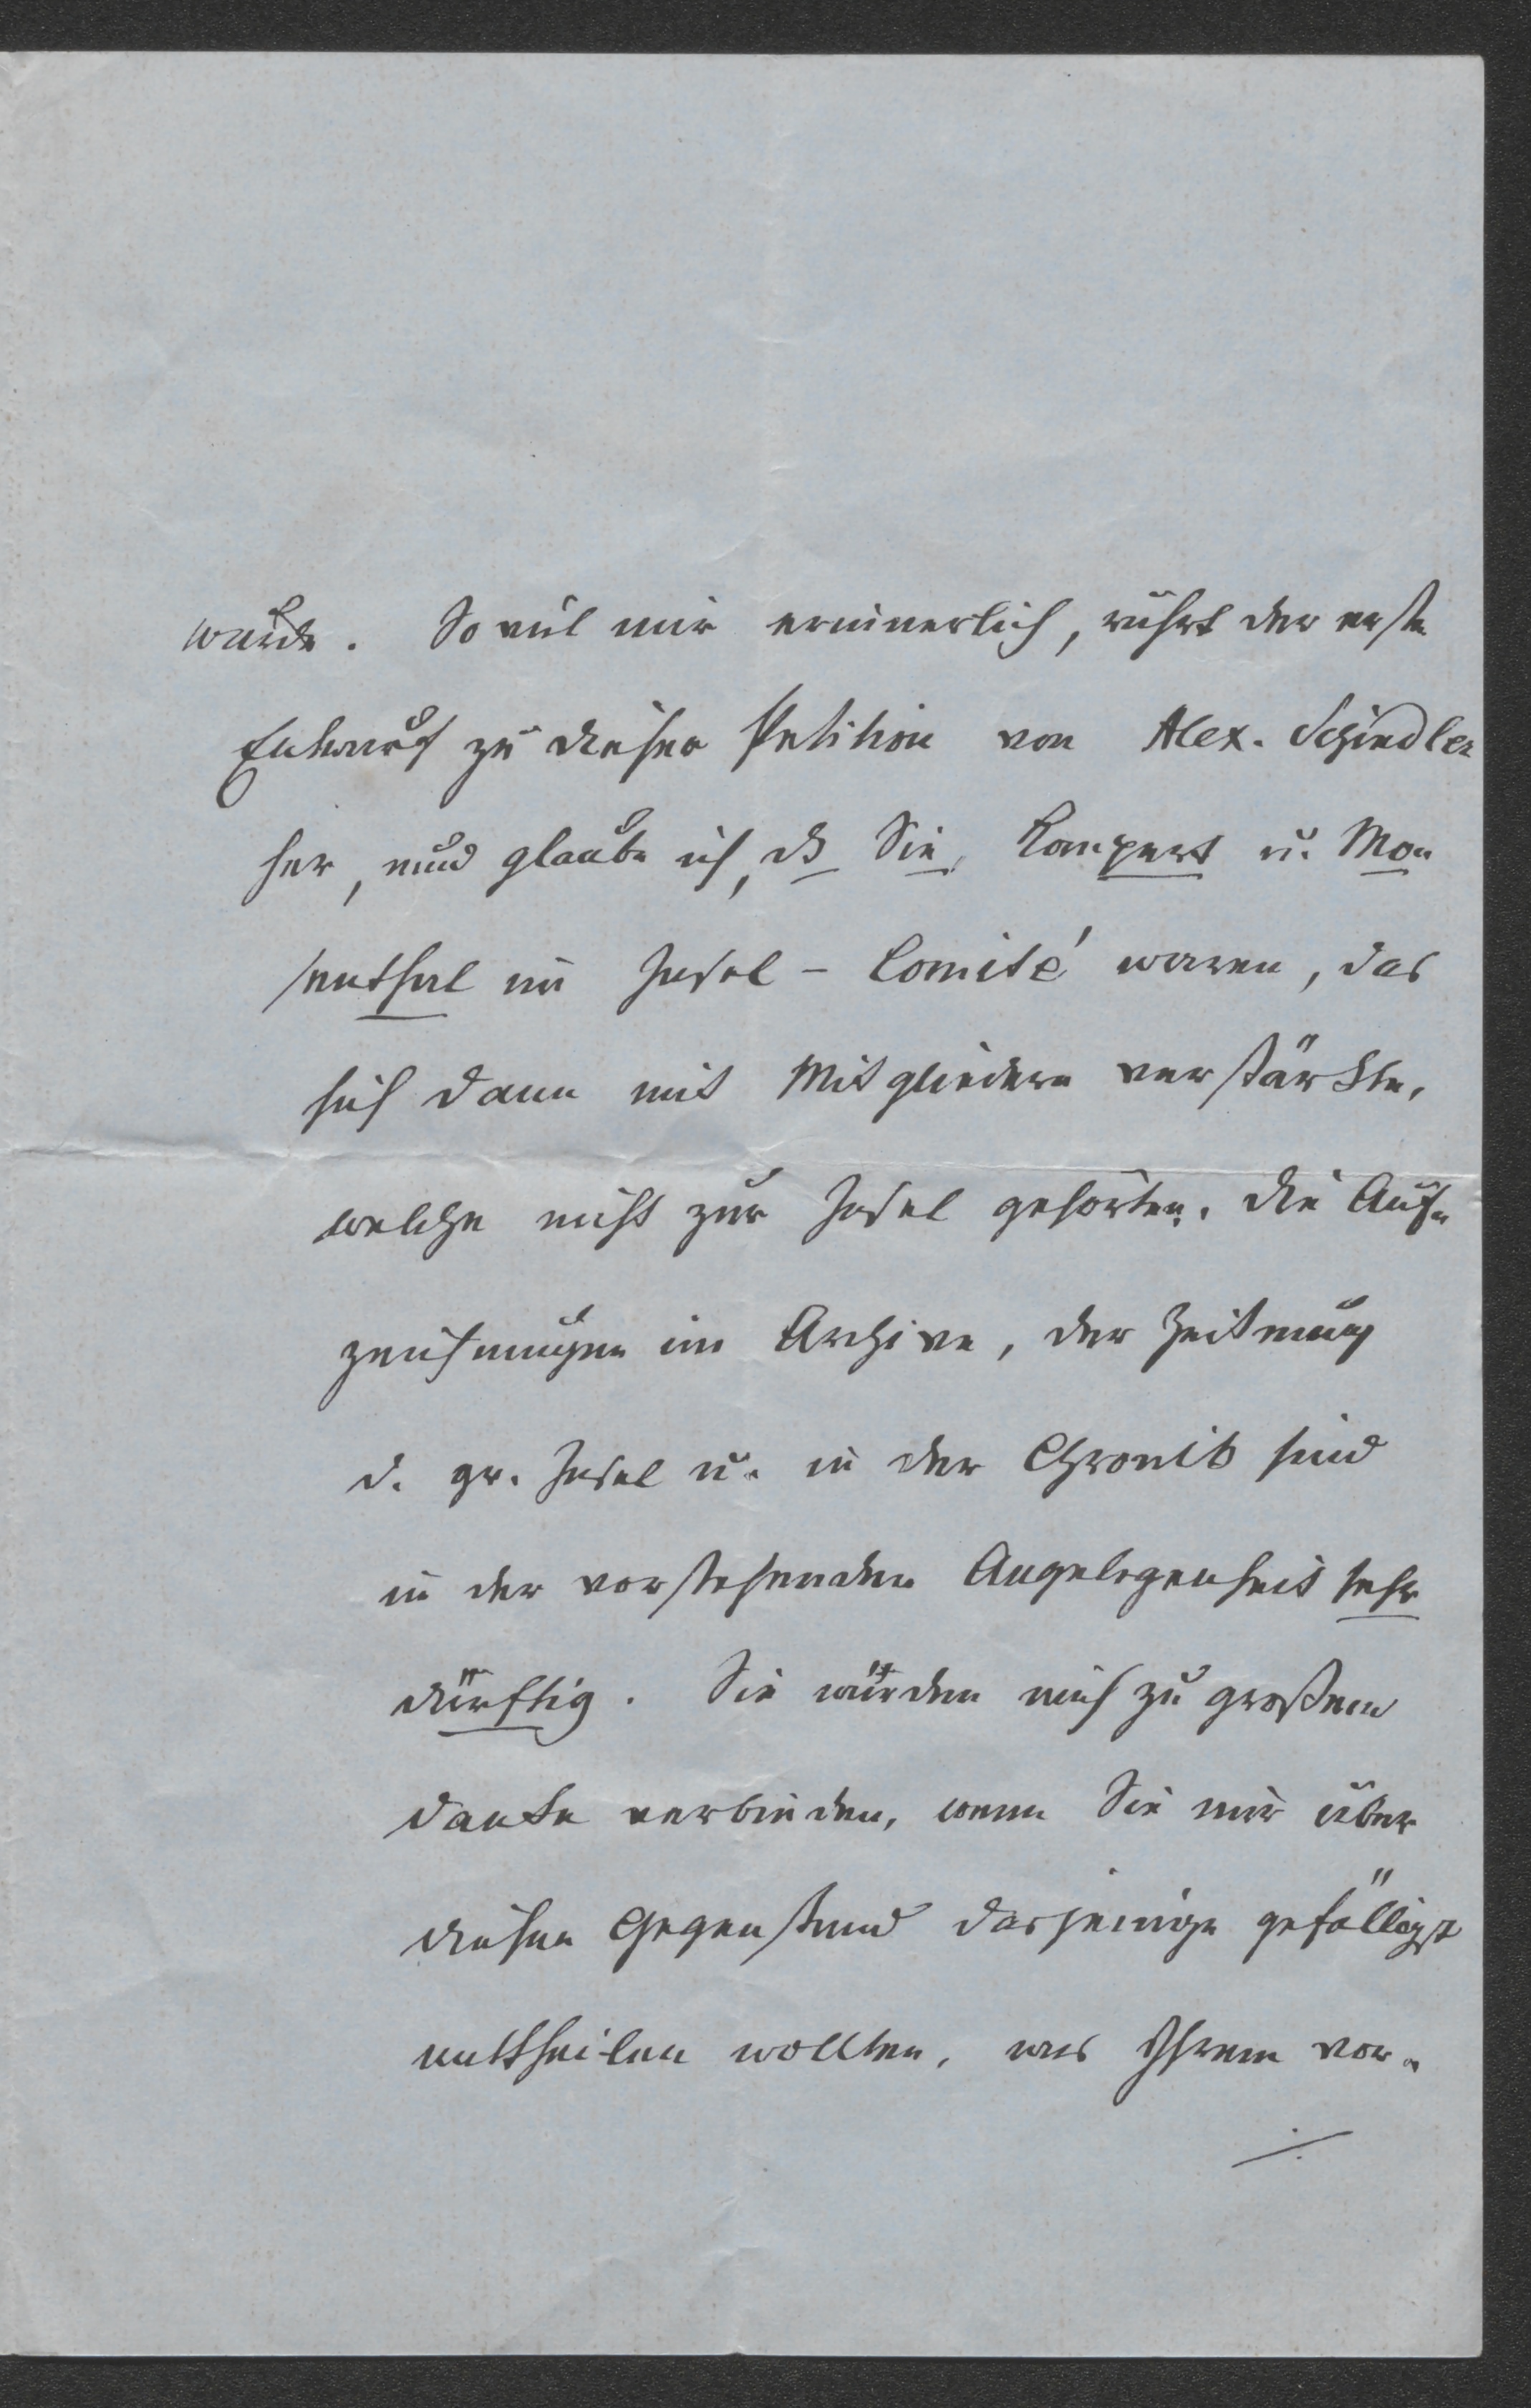 wurde. So viel mir erinnerlich, rührt der erste
Entwurf zu dieser Petition von Alex. Schindler
her, und glaube ich, dß Sie, Kompert u. Mo-
senthal im Insel-Comité waren, das
sich dann mit Mitgliedern verstärkte,
welche nicht zur Insel gehörten. Die Auf-
zeichnungen im Archive, der Zeitung
d. gr. Insel u. in der Chronik sind
in der vorstehenden Angelegenheit sehr
dürftig. Sie würden mich zu großem
Danke verbinden, wenn Sie mir über
diesen Gegenstand dasjenige gefälligst
mittheilen wollten, was Ihrem vor-